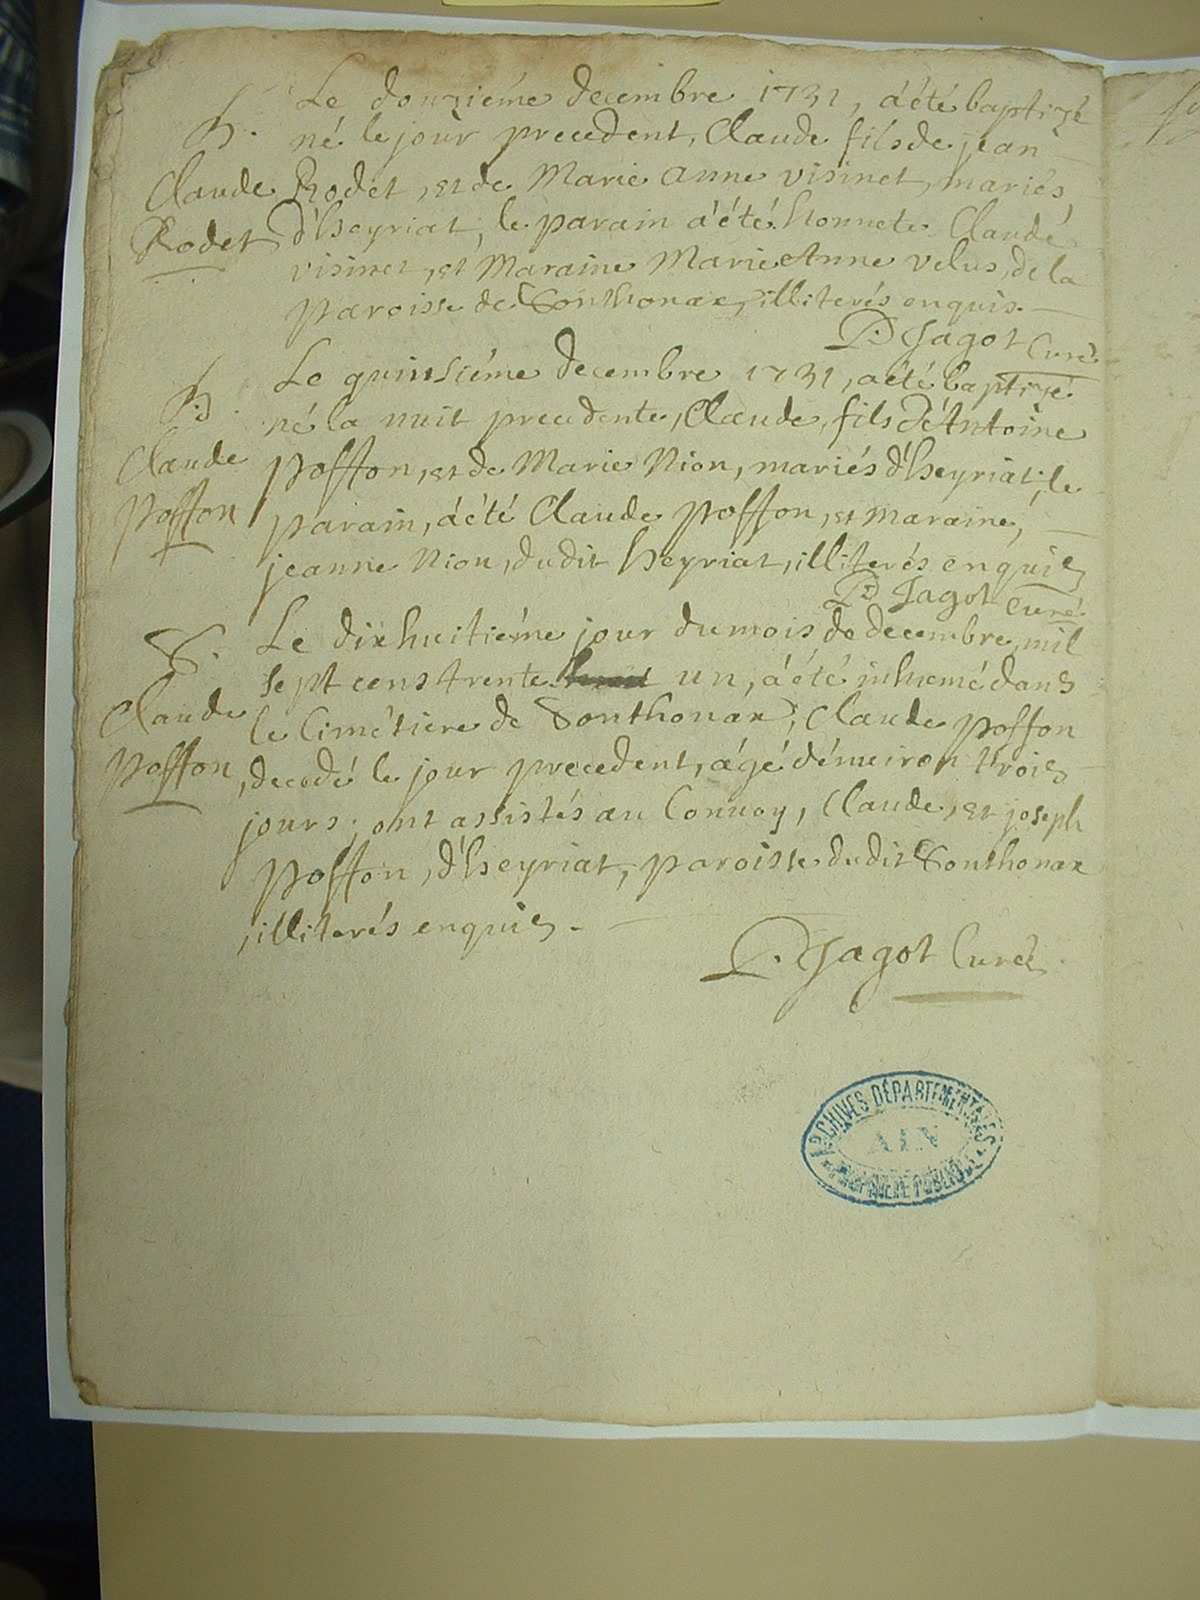 B.
Claude
Rodet
Le douziéme decembre 1731, a été baptizé
né le jour precedent, Claude fils de jean
Rodet, et de Marie Anne visinet, mariés,
d'heyriat, le parain a été honnete Claude
visinet, et Maraine Marie Anne velus, de la
paroisse de Sonthonax, illiterés enquis.
P. Jagot Curé
B.
Claude
Poffon
Le quinsiéme decembre 1731, a été baptizé
né la nuit precedente, Claude, fils d'Antoine
Poffon, et de Marie Nion, mariés d'heyriat; le
parain, a été Claude Poffon, et Maraine,
jeanne Nion, dudit heyriat, illiterés enquis
P. Jagot Curé
S.
Claude
Poffon
Le dixhuitiéme jour du mois de decembre, mil
sept cens trente un, a été inhumé dans
le Cimétiere de Sonthonax; Claude Poffon
, decedé le jour precedent, agé d'énuiron trois
jours; ont assistés au Conuoy, Claude, et joseph
Poffon, d'heyriat, paroisse dudit Sonthonax
, illiterés enquis.
P. Jagot Curé
ARCHIVES DÉPARTEMENTALES
AIN